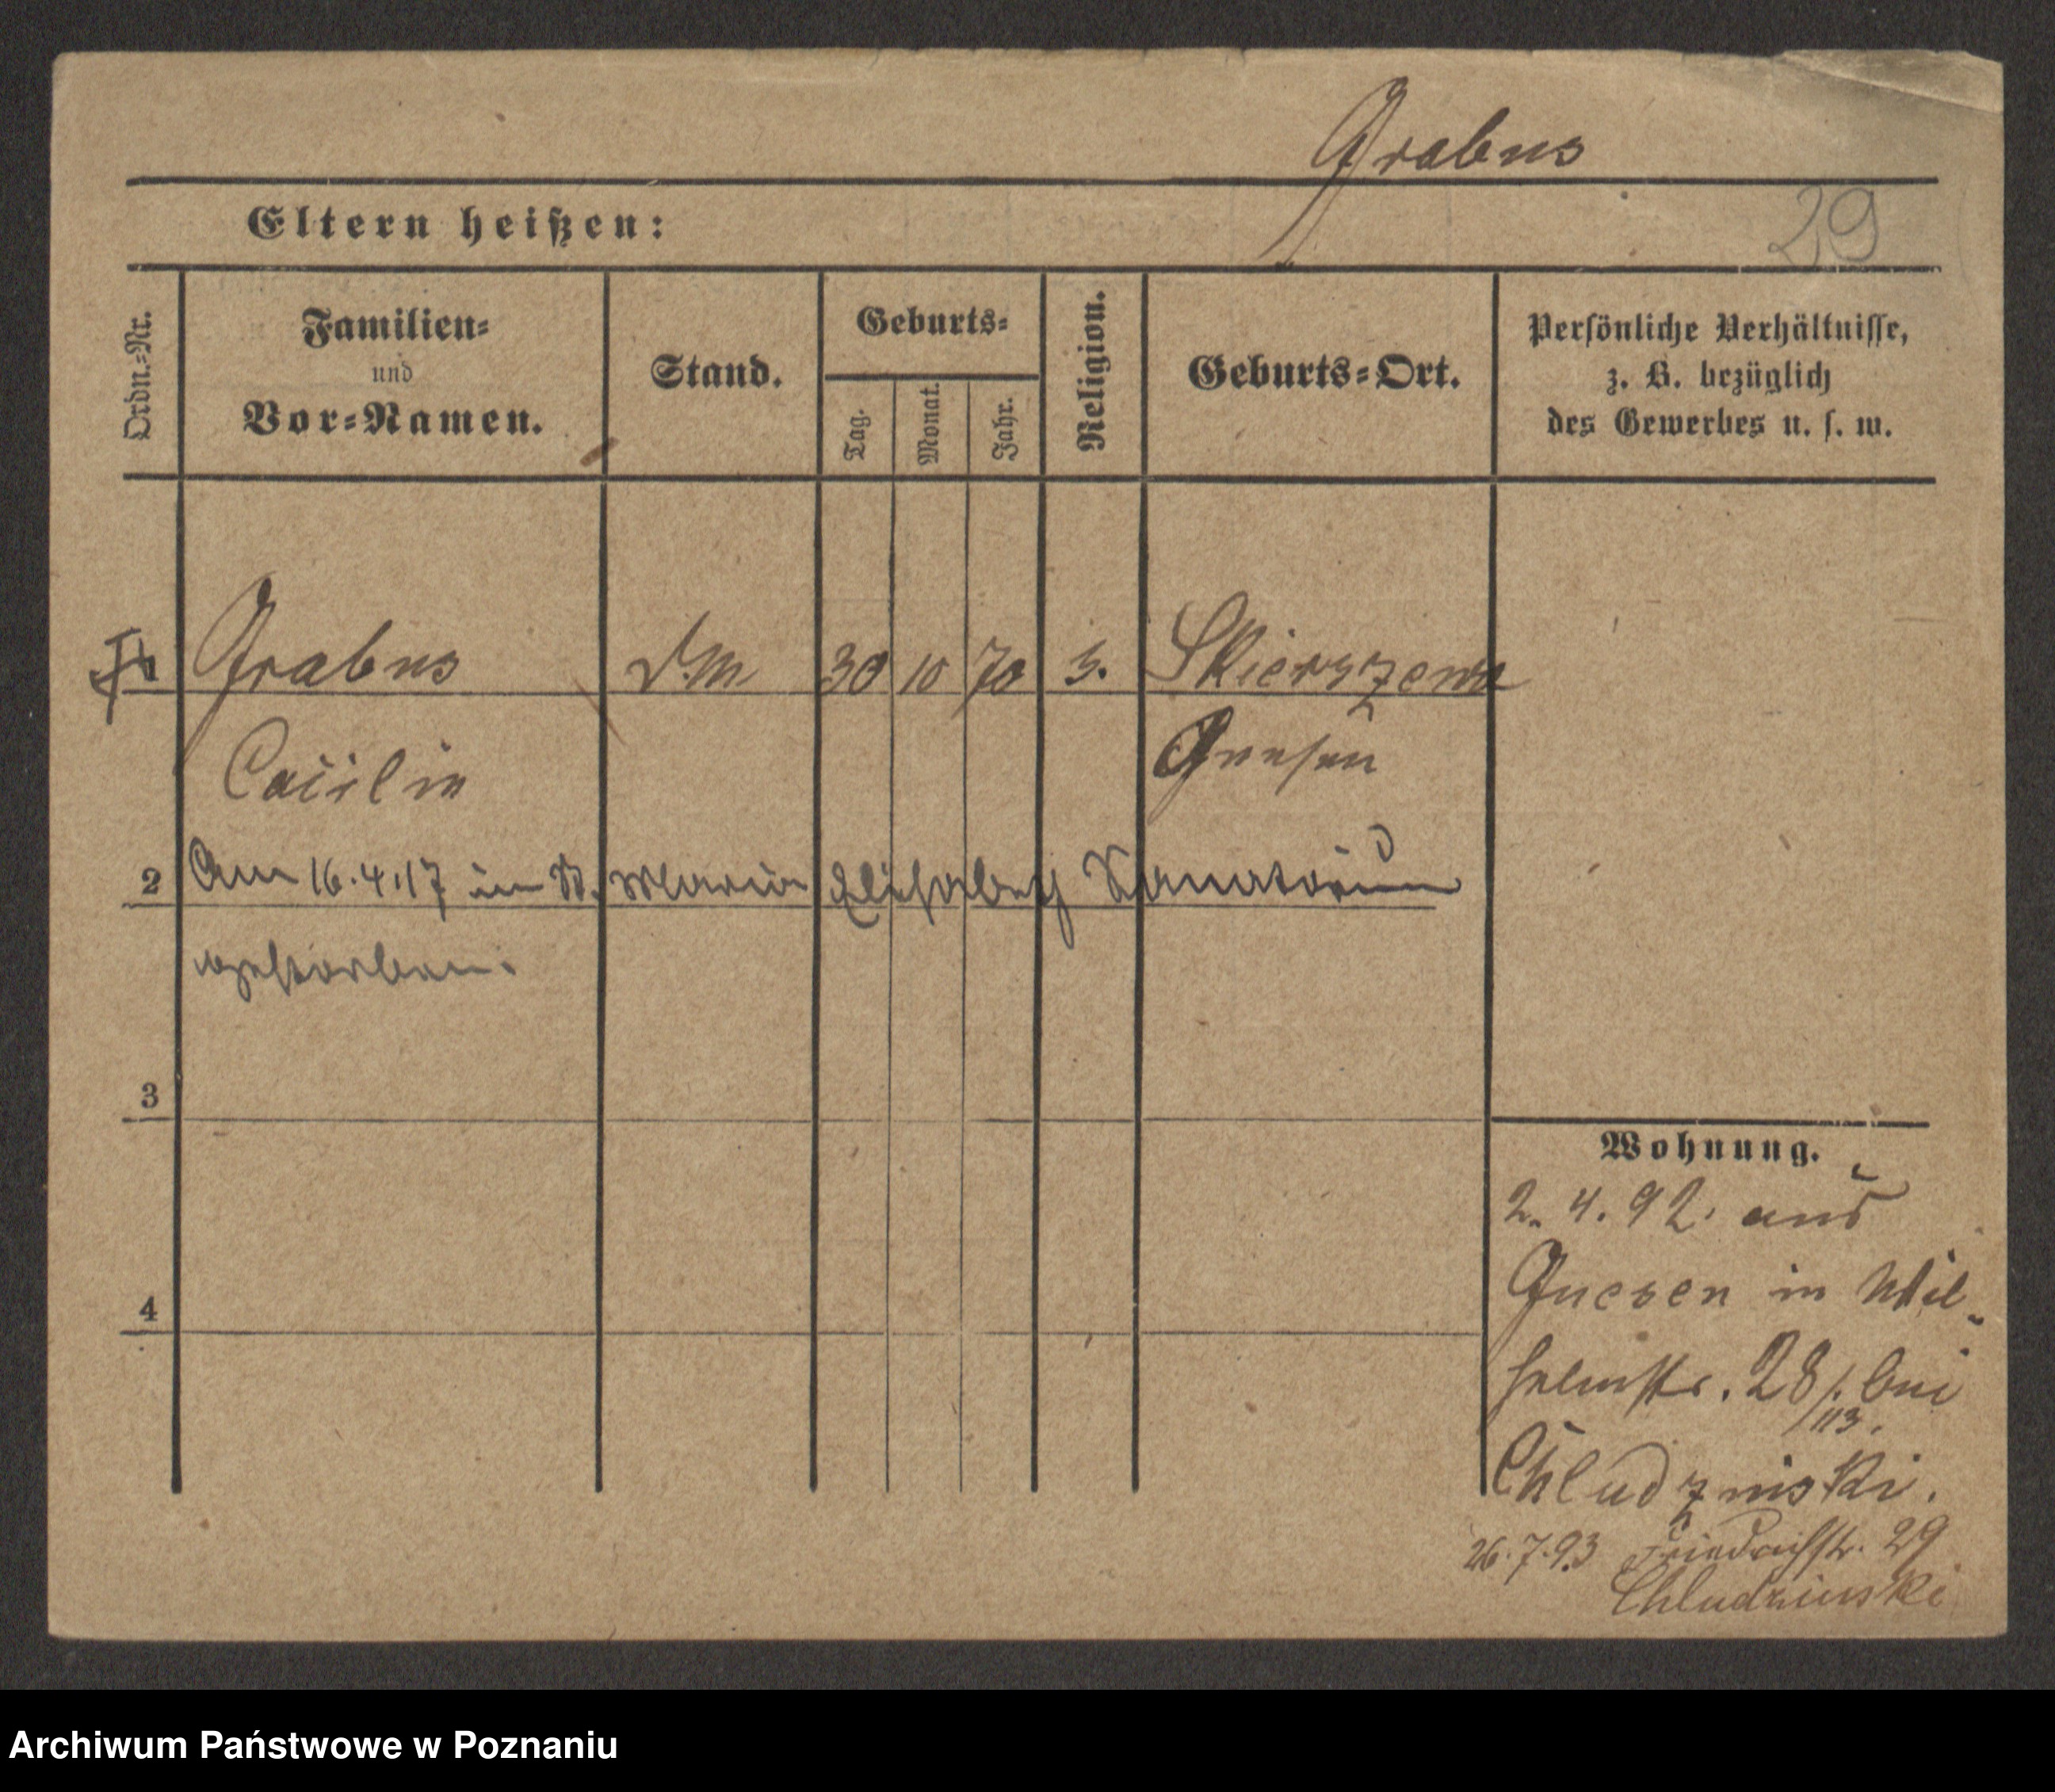 Grabus
29
Eltern heißen:
Ordn.-Nr.
Familien-
und
Vor-Namen.
Stand.
Geburts-
Tag.
Monat.
Jahr.
Religion.
Geburts-Ort.
Persönliche Verhältnisse,
z. B. bezüglich
des Gewerbes u. s. w.
1 Grabus D.M. 30 10 70 Skierszewo
Cäcilie Gnesen
2 Am 16.4.17 im St. Maria Elisabeth Sanatorium
gestorben.
3
4
Wohnung.
2. 4. 92. aus
Gnesen in Wil-
helmstr. 28/. bei
113.
Chludzinski.
26.7.93 Friedrichstr. 29
Chludzinski
Archiwum Państwowe w Poznaniu